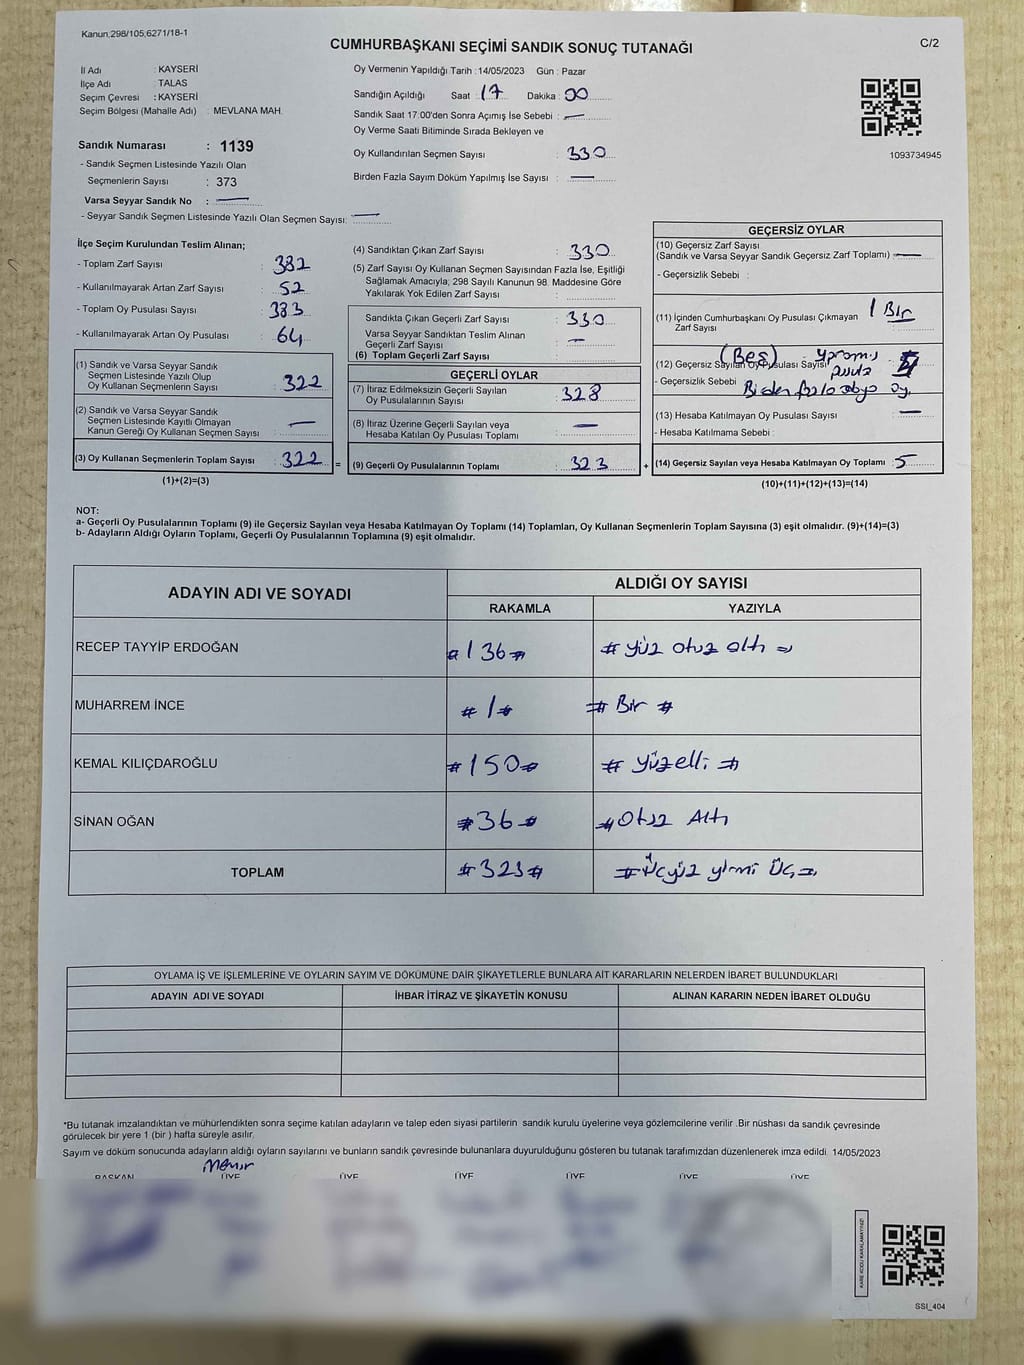 Kanun;298/105;6271/18-1
CUMHURBAŞKANI SEÇİMİ SANDIK SONUÇ TUTANAĞI
C/2
İl Adı : KAYSERİ
İlçe Adı : TALAS
Seçim Çevresi : KAYSERİ
Seçim Bölgesi (Mahalle Adı) : MEVLANA MAH.
Oy Vermenin Yapıldığı Tarih : 14/05/2023 Gün : Pazar
Sandığın Açıldığı Saat : 17 Dakika : 00
Sandık Saat 17:00'den Sonra Açımış İse Sebebi : —
Oy Verme Saati Bitiminde Sırada Bekleyen ve
Oy Kullandırılan Seçmen Sayısı : 330
Birden Fazla Sayım Döküm Yapılmış İse Sayısı : —
1093734945
Sandık Numarası : 1139
- Sandık Seçmen Listesinde Yazılı Olan
Seçmenlerin Sayısı : 373
Varsa Seyyar Sandık No : —
- Seyyar Sandık Seçmen Listesinde Yazılı Olan Seçmen Sayısı: —
İlçe Seçim Kurulundan Teslim Alınan;
- Toplam Zarf Sayısı : 382
- Kullanılmayarak Artan Zarf Sayısı : 52
- Toplam Oy Pusulası Sayısı : 383
- Kullanılmayarak Artan Oy Pusulası : 64
(1) Sandık ve Varsa Seyyar Sandık
Seçmen Listesinde Yazılı Olup
Oy Kullanan Seçmenlerin Sayısı : 322
(2) Sandık ve Varsa Seyyar Sandık
Seçmen Listesinde Kayıtlı Olmayan
Kanun Gereği Oy Kullanan Seçmen Sayısı : —
(3) Oy Kullanan Seçmenlerin Toplam Sayısı : 322
(1)+(2)=(3)
(4) Sandıktan Çıkan Zarf Sayısı : 330
(5) Zarf Sayısı Oy Kullanan Seçmen Sayısından Fazla İse, Eşitliği
Sağlamak Amacıyla; 298 Sayılı Kanunun 98. Maddesine Göre
Yakılarak Yok Edilen Zarf Sayısı :
Sandıkta Çıkan Geçerli Zarf Sayısı : 330
Varsa Seyyar Sandıktan Teslim Alınan
Geçerli Zarf Sayısı : —
(6) Toplam Geçerli Zarf Sayısı :
GEÇERLİ OYLAR
(7) İtiraz Edilmeksizin Geçerli Sayılan
Oy Pusulalarının Sayısı : 328
(8) İtiraz Üzerine Geçerli Sayılan veya
Hesaba Katılan Oy Pusulası Toplamı : —
= (9) Geçerli Oy Pusulalarının Toplamı : 323
GEÇERSİZ OYLAR
(10) Geçersiz Zarf Sayısı
(Sandık ve Varsa Seyyar Sandık Geçersiz Zarf Toplamı) : —
- Geçersizlik Sebebi :
(11) İçinden Cumhurbaşkanı Oy Pusulası Çıkmayan
Zarf Sayısı 1 Bir
(Beş)
(12) Geçersiz Sayılan Oy Pusulası Sayısı
pusula
- Geçersizlik Sebebi Birden fazla oy.
(13) Hesaba Katılmayan Oy Pusulası Sayısı : —
- Hesaba Katılmama Sebebi :
+ (14) Geçersiz Sayılan veya Hesaba Katılmayan Oy Toplamı : 5
(10)+(11)+(12)+(13)=(14)
NOT:
a- Geçerli Oy Pusulalarının Toplamı (9) ile Geçersiz Sayılan veya Hesaba Katılmayan Oy Toplamı (14) Toplamları, Oy Kullanan Seçmenlerin Toplam Sayısına (3) eşit olmalıdır. (9)+(14)=(3)
b- Adayların Aldığı Oyların Toplamı, Geçerli Oy Pusulalarının Toplamına (9) eşit olmalıdır.
ADAYIN ADI VE SOYADI
ALDIĞI OY SAYISI
RAKAMLA YAZIYLA
RECEP TAYYİP ERDOĞAN # 136 # # Yüz otuz altı #
MUHARREM İNCE # 1 # # Bir #
KEMAL KILIÇDAROĞLU # 150 # # Yüzelli #
SİNAN OĞAN # 36 # # Otuz Altı
TOPLAM # 323 # # Üçyüz yirmi Üç #
OYLAMA İŞ VE İŞLEMLERİNE VE OYLARIN SAYIM VE DÖKÜMÜNE DAİR ŞİKAYETLERLE BUNLARA AİT KARARLARIN NELERDEN İBARET BULUNDUKLARI
ADAYIN ADI VE SOYADI İHBAR İTİRAZ VE ŞİKAYETİN KONUSU ALINAN KARARIN NEDEN İBARET OLDUĞU
*Bu tutanak imzalandıktan ve mühürlendikten sonra seçime katılan adayların ve talep eden siyasi partilerin sandık kurulu üyelerine veya gözlemcilerine verilir .Bir nüshası da sandık çevresinde
görülecek bir yere 1 (bir ) hafta süreyle asılır.
Sayım ve döküm sonucunda adayların aldığı oyların sayılarını ve bunların sandık çevresinde bulunanlara duyurulduğunu gösteren bu tutanak tarafımızdan düzenlenerek imza edildi. 14/05/2023
Memur
BAŞKAN ÜYE ÜYE ÜYE ÜYE ÜYE ÜYE
KARE KODU KARALAMAYINIZ!
SSI_404